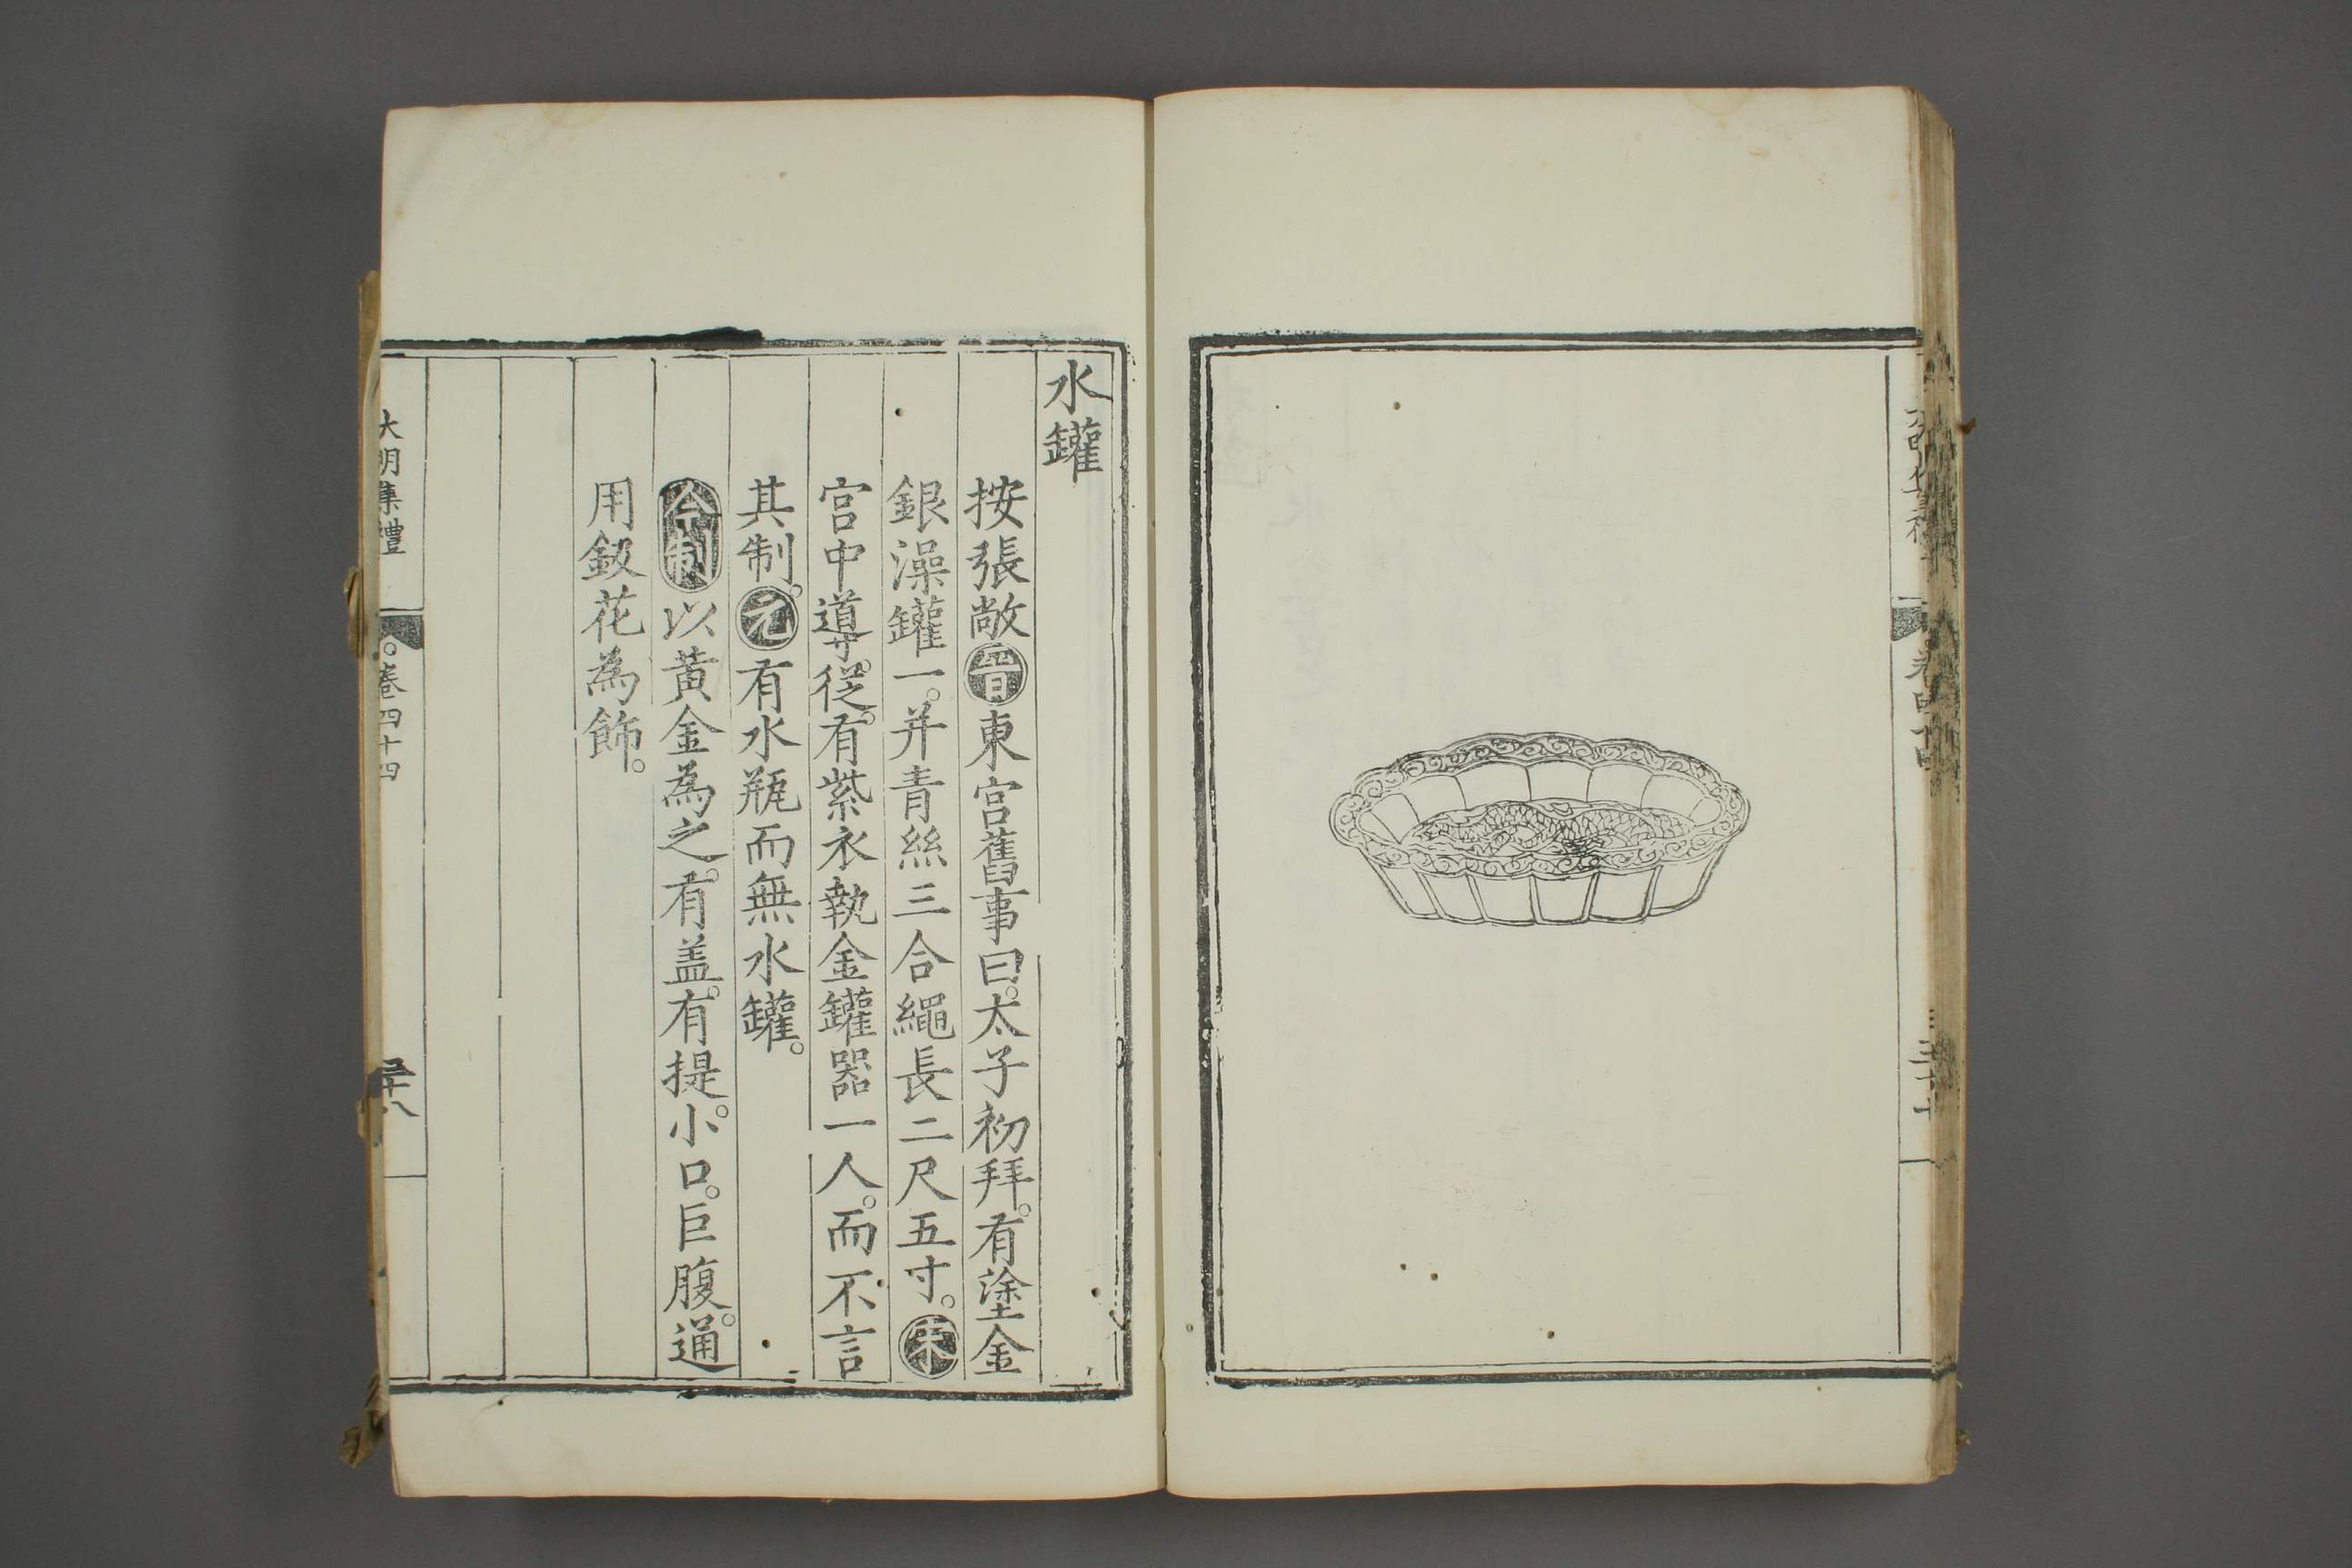 水罐
按張敞晉東宮舊事曰。太子初拜。有塗金
銀澡罐一。并青絲三合繩長二尺五寸。宋
宮中導從。有紫衣執金罐器一人。而不言
其制。元有水瓶而無水罐。
今制以黃金為之。有盖。有提。小口。巨腹。通
用鈒花為飾。
大明集禮
卷四十四
三十八